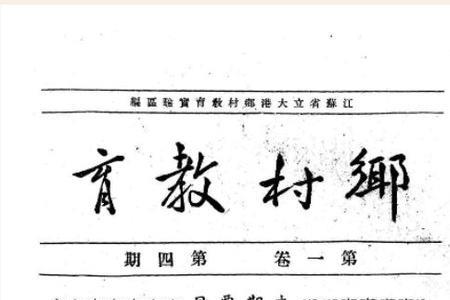 江蘇省立大港鄉村教育實驗區編
鄉村教育
第一卷 第四期